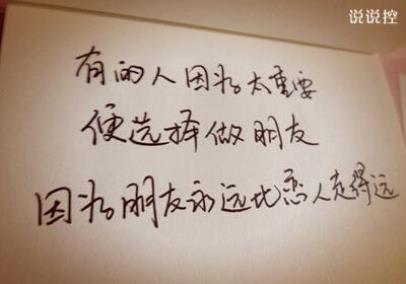 说说控
有的人因为太重要
便选择做朋友
因为朋友永远比恋人走得远